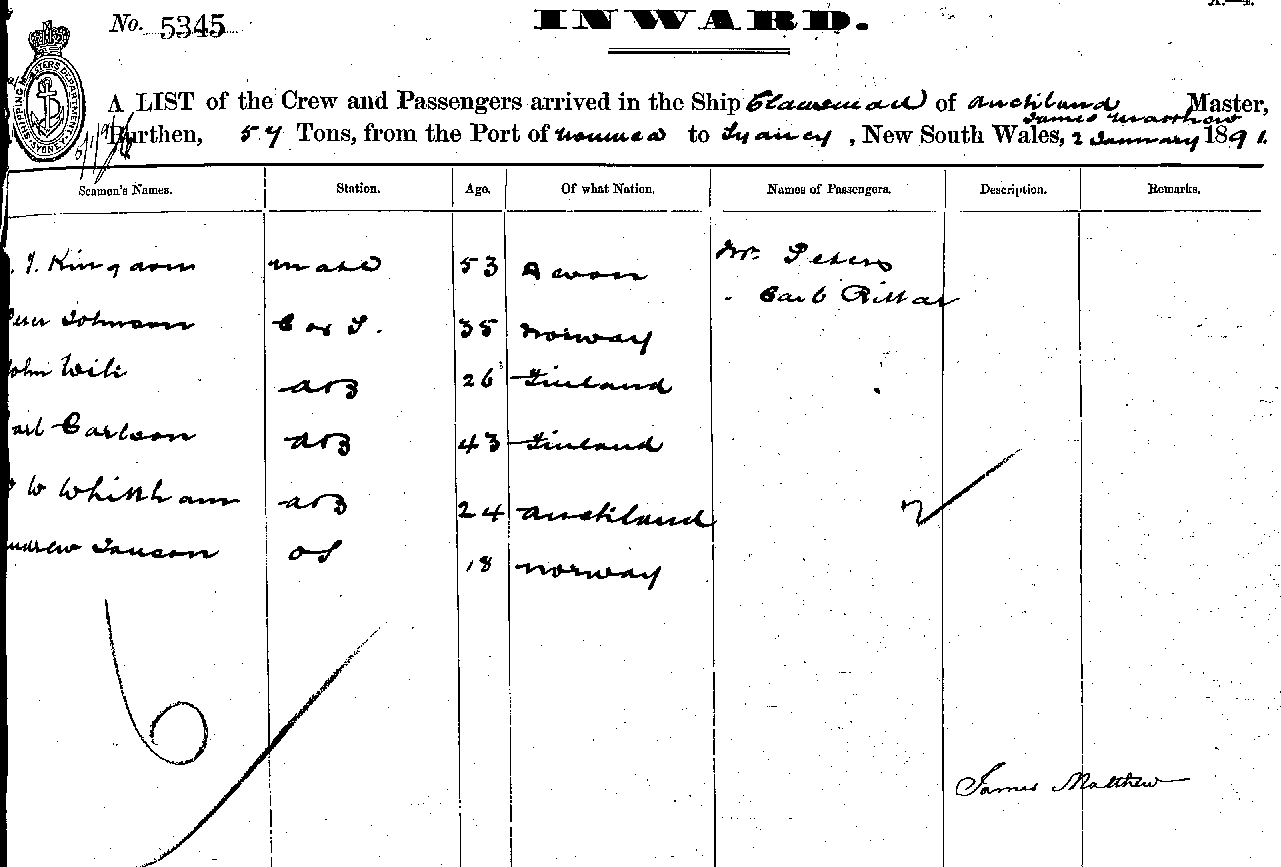 No. 5345
INWARD.
A LIST of the Crew and Passengers arrived in the Ship of Auckland Master,
James Matthew
Burthen, 57 Tons, from the Port of Noumea to Sydney, New South Wales, 2 January 1891.
Seamen's Names. Station. Age. Of what Nation. Names of Passengers. Description. Remarks.
J. Kingdom mate 53 Devon Mr. Peters
Carl Rittar
Johnson 35 Norway
John Wili AB 26 Finland
Carl Carlson AB 43 Finland
W Whitham AB 24 Auckland
Andrew OS 18 Norway
2
6
James Matthew